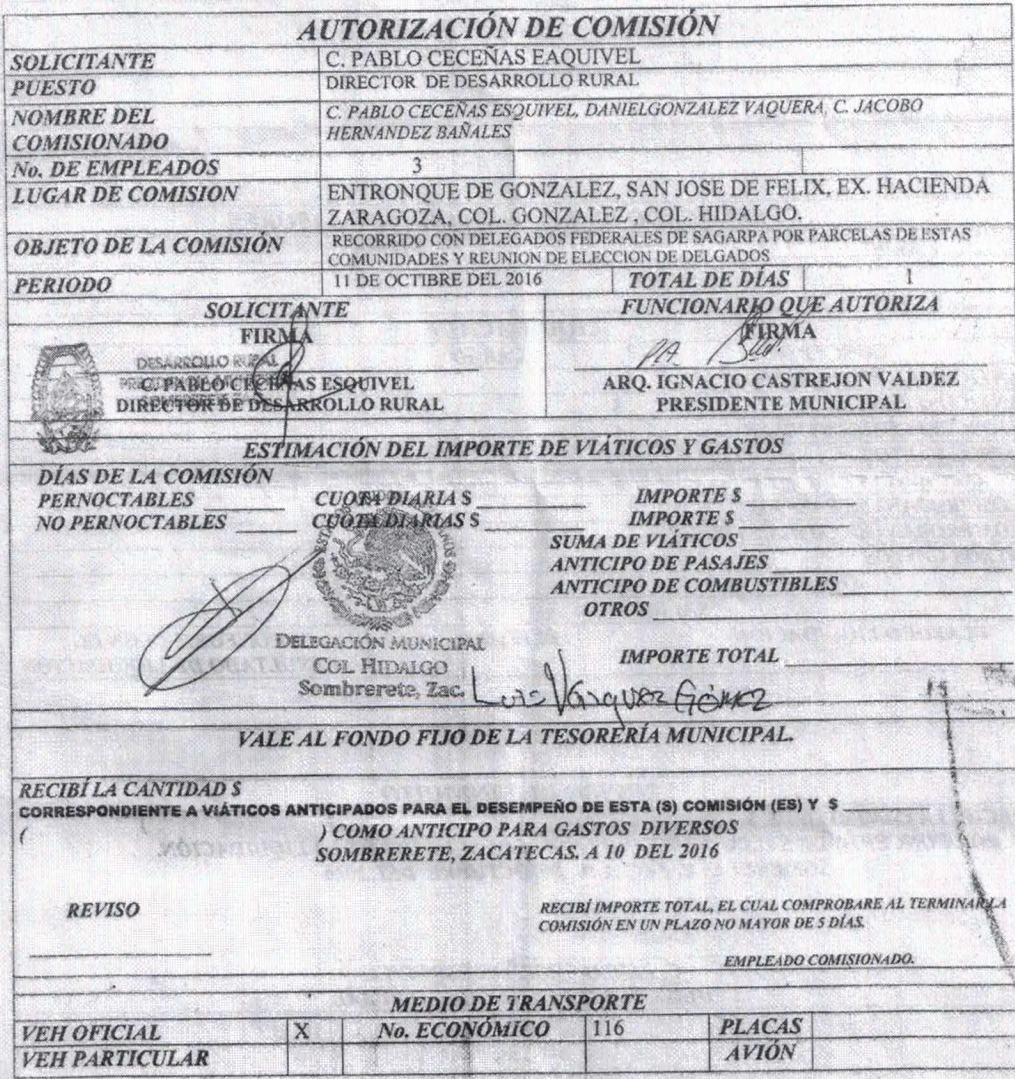 AUTORIZACIÓN DE COMISIÓN
SOLICITANTE C. PABLO CECEÑAS EAQUIVEL
PUESTO DIRECTOR DE DESARROLLO RURAL
NOMBRE DEL COMISIONADO C. PABLO CECEÑAS ESQUIVEL, DANIELGONZALEZ VAQUERA, C. JACOBO
HERNANDEZ BAÑALES
No. DE EMPLEADOS 3
LUGAR DE COMISION ENTRONQUE DE GONZALEZ, SAN JOSE DE FELIX, EX. HACIENDA
ZARAGOZA, COL. GONZALEZ , COL. HIDALGO.
OBJETO DE LA COMISIÓN RECORRIDO CON DELEGADOS FEDERALES DE SAGARPA POR PARCELAS DE ESTAS
COMUNIDADES Y REUNION DE ELECCION DE DELGADOS
PERIODO 11 DE OCTIBRE DEL 2016 TOTAL DE DÍAS 1
SOLICITANTE FUNCIONARIO QUE AUTORIZA
FIRMA FIRMA
DESARROLLO RURAL
P.A.
C. PABLO CECEÑAS ESQUIVEL ARQ. IGNACIO CASTREJON VALDEZ
DIRECTOR DE DESARROLLO RURAL PRESIDENTE MUNICIPAL
ESTIMACIÓN DEL IMPORTE DE VIÁTICOS Y GASTOS
DÍAS DE LA COMISIÓN
PERNOCTABLES CUOTA DIARIA $ IMPORTE $
NO PERNOCTABLES CUOTA DIARIAS $ IMPORTE $
SUMA DE VIÁTICOS
ANTICIPO DE PASAJES
ANTICIPO DE COMBUSTIBLES
OTROS
DELEGACIÓN MUNICIPAL
COL. HIDALGO
Sombrerete, Zac.
IMPORTE TOTAL
Luis Vázquez Gómez
VALE AL FONDO FIJO DE LA TESORERÍA MUNICIPAL.
RECIBÍ LA CANTIDAD $
CORRESPONDIENTE A VIÁTICOS ANTICIPADOS PARA EL DESEMPEÑO DE ESTA (S) COMISIÓN (ES) Y $
( ) COMO ANTICIPO PARA GASTOS DIVERSOS
SOMBRERETE, ZACATECAS. A 10 DEL 2016
REVISO
RECIBÍ IMPORTE TOTAL, EL CUAL COMPROBARE AL TERMINAR LA
COMISIÓN EN UN PLAZO NO MAYOR DE 5 DÍAS.
EMPLEADO COMISIONADO.
MEDIO DE TRANSPORTE
VEH OFICIAL X No. ECONÓMICO 116 PLACAS
VEH PARTICULAR AVIÓN